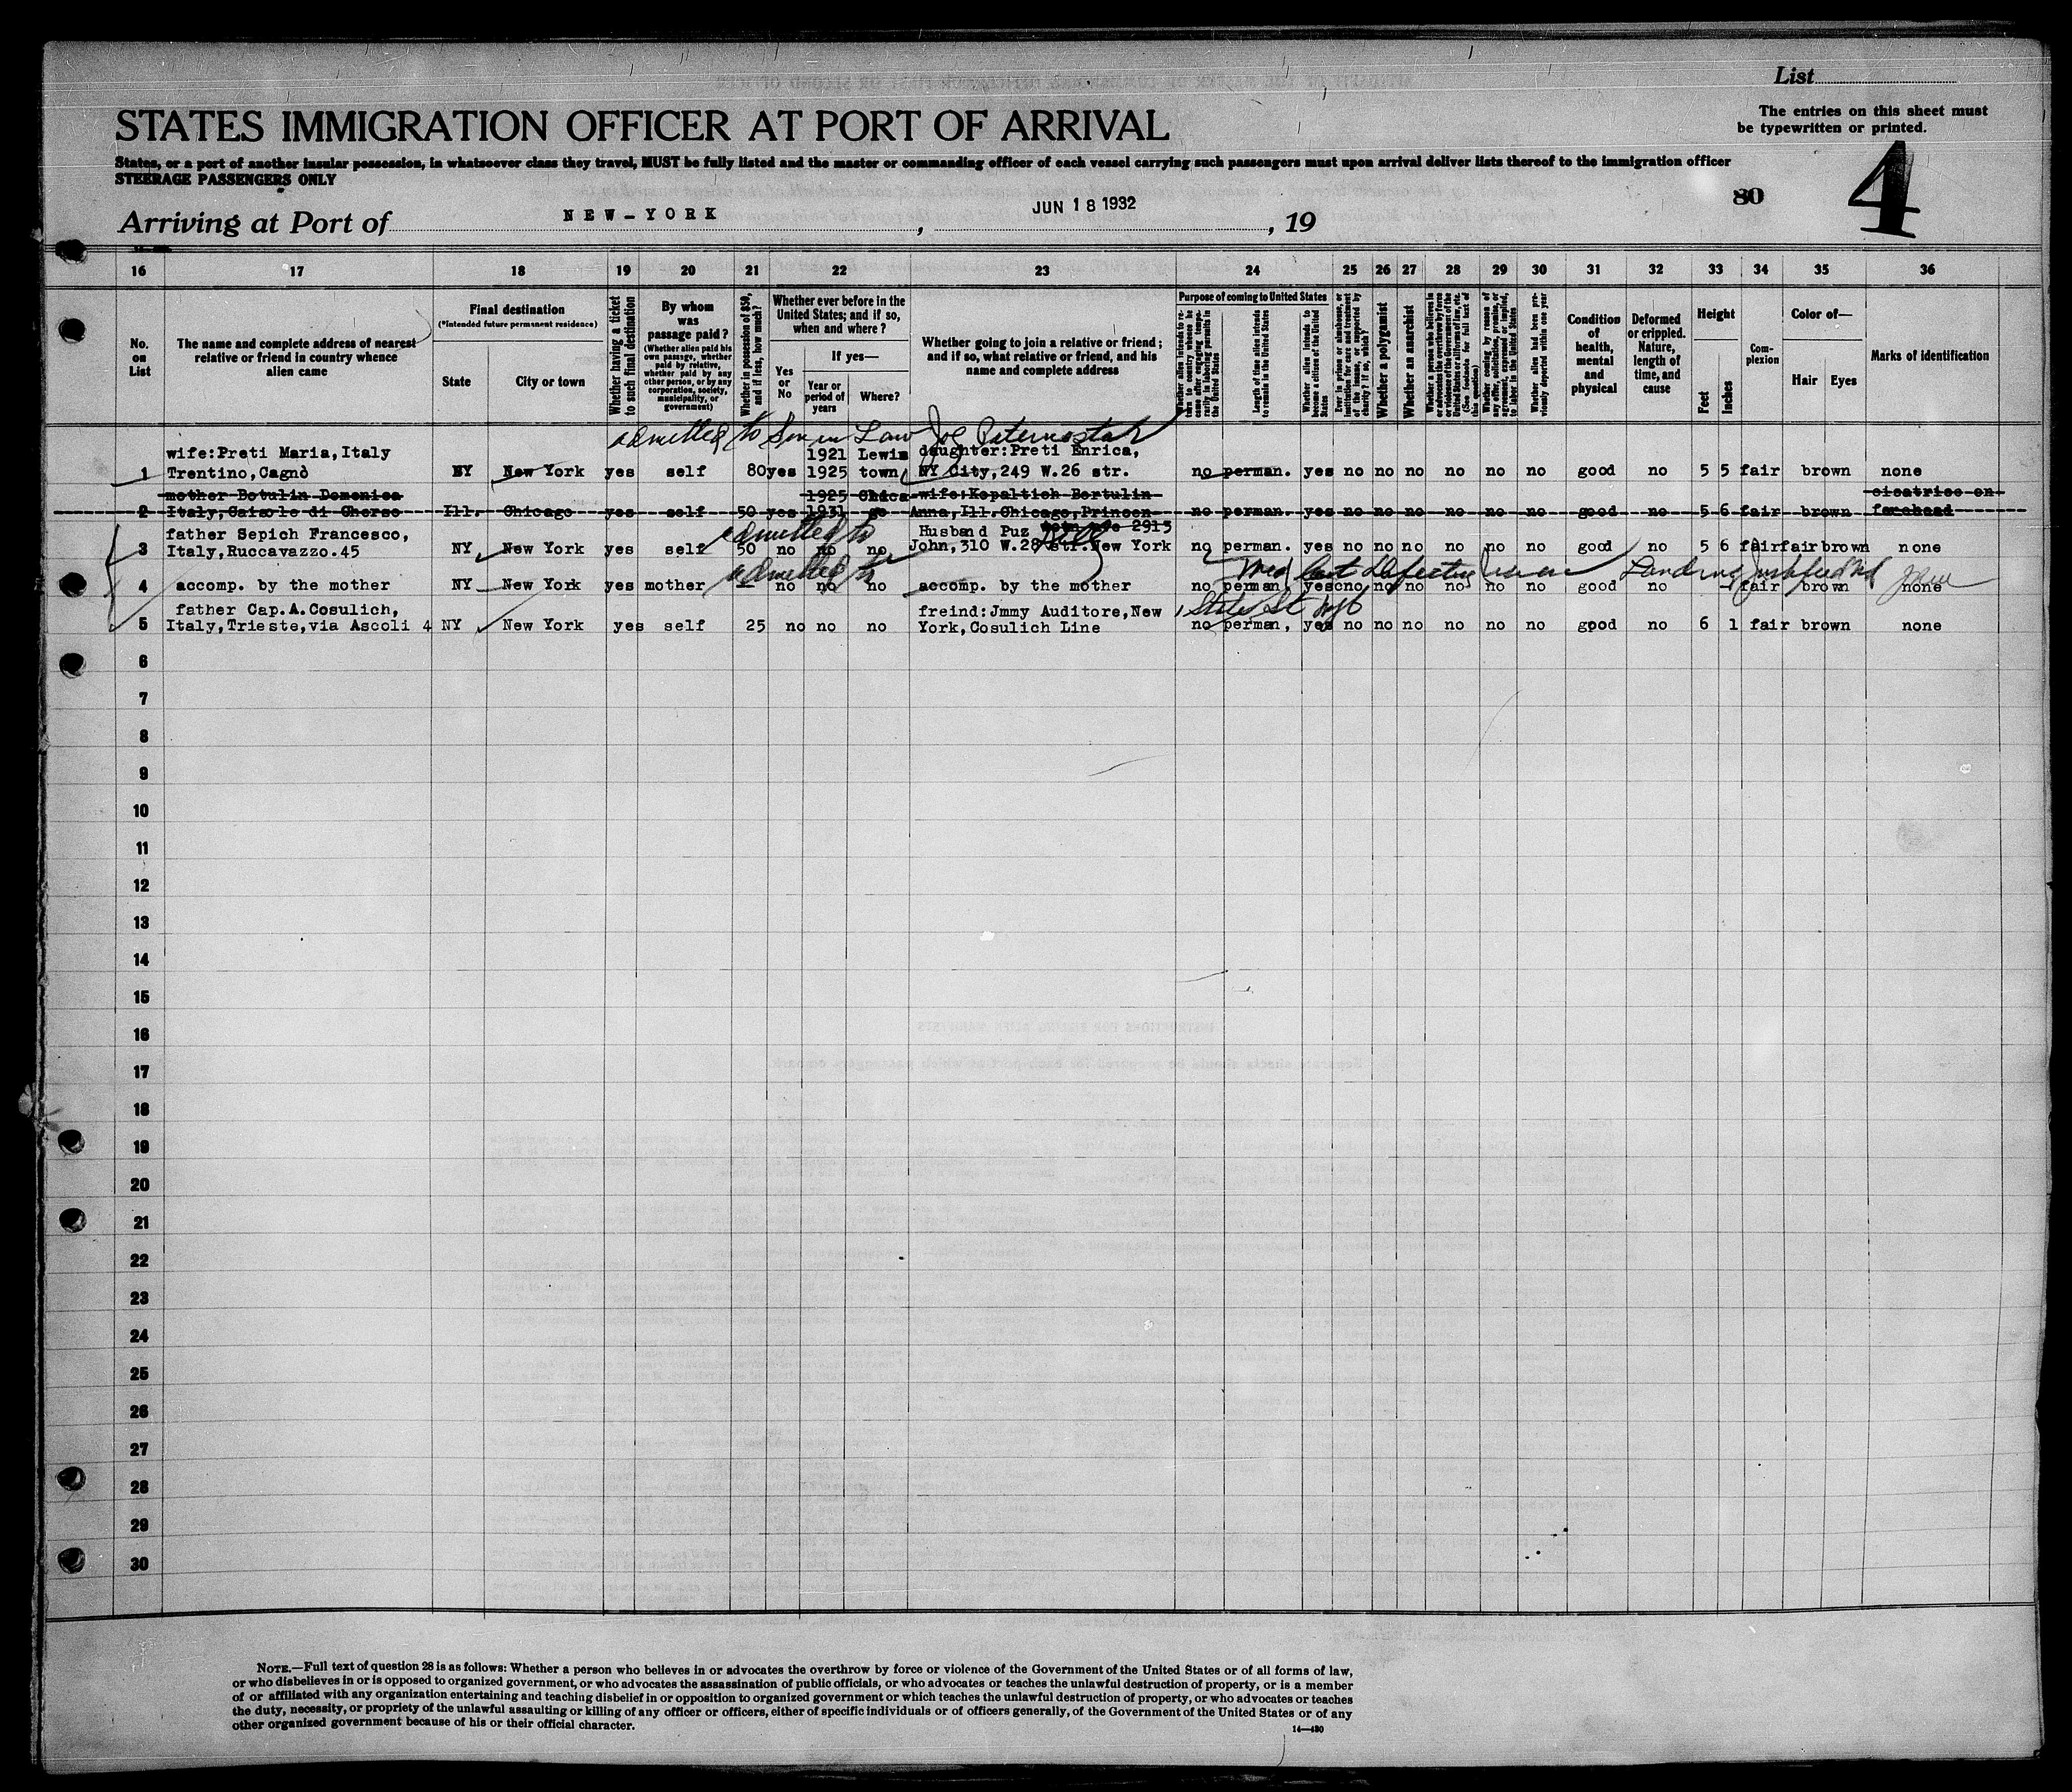 List
The entries on this sheet must
be typewritten or printed.
STATES IMMIGRATION OFFICER AT PORT OF ARRIVAL
States, or a port of another insular possession, in whatsoever class they travel, MUST be fully listed and the master or commanding officer of each vessel carrying such passengers must upon arrival deliver lists thereof to the immigration officer
STEERAGE PASSENGERS ONLY
30
4
Arriving at Port of NEW-YORK, JUN 18 1932, 19
16 17 18 19 20 21 22 23 24 25 26 27 28 29 30 31 32 33 34 35 36
No. on List
The name and complete address of nearest relative or friend in country whence alien came
Final destination
(*Intended future permanent residence)
State
City or town
Whether having a ticket to such final destination
By whom was passage paid?
(Whether alien paid his own passage, whether paid by relative, whether paid by any other person, or by any corporation, society, municipality, or government)
Whether in possession of $50, and if less, how much?
Whether ever before in the United States; and if so, when and where?
Yes or No
If yes—
Year or period of years
Where?
Whether going to join a relative or friend; and if so, what relative or friend, and his name and complete address
Purpose of coming to United States
Whether alien intends to return to country whence he came after engaging temporarily in laboring pursuits in the United States
Length of time alien intends to remain in the United States
Whether alien intends to become a citizen of the United States
Ever in prison or almshouse, or institution for care and treatment of the insane, or supported by charity? If so, which?
Whether a polygamist
Whether an anarchist
Whether a person who believes in or advocates the overthrow by force or violence of the Government of the United States or all forms of law, etc. (See footnote for full text of this question)
Whether coming by reason of any offer, solicitation, promise, or agreement, expressed or implied, to labor in the United States
Whether alien had been previously deported within one year
Condition of health, mental and physical
Deformed or crippled. Nature, length of time, and cause
Height
Feet
Inches
Complexion
Color of—
Hair
Eyes
Marks of identification
admitted to Son in Law Joe Paternostar
wife:Preti Maria,Italy 1921 Lewis daughter:Preti Enrica,
1 Trentino,Cagnò NY New York yes self 80 yes 1925 town NY City,249 W.26 str. no perman. yes no no no no no no good no 5 5 fair brown none
mother Botulin Domenica 1925 Chica- wife:Kopaltich Bertulin cicatrice on
2 Italy,Caisole di Cherso Ill. Chicago yes self 50 yes 1931 go Anna,Ill.Chicago,Princen- no perman. yes no no no no no no good no 5 6 fair brown forehead
father Sepich Francesco, admitted to Husband Puz 2913
3 Italy,Ruccavazzo.45 NY New York yes self 50 no no no John,310 W.28 str.New York no perman. yes no no no no no no good no 5 6 fair fair brown none
admitted to Med Cert Defective Landing Justified
4 accomp. by the mother NY New York yes mother — no no no accomp. by the mother no perman yes no no no no no no good no - fair brown none
father Cap.A.Cosulich, freind:Jmmy Auditore,New State St
5 Italy,Trieste,via Ascoli 4 NY New York yes self 25 no no no York,Cosulich Line no perman, yes no no no no no no good no 6 1 fair brown none
6
7
8
9
10
11
12
13
14
15
16
17
18
19
20
21
22
23
24
25
26
27
28
29
30
NOTE.—Full text of question 28 is as follows: Whether a person who believes in or advocates the overthrow by force or violence of the Government of the United States or of all forms of law,
or who disbelieves in or is opposed to organized government, or who advocates the assassination of public officials, or who advocates or teaches the unlawful destruction of property, or is a member
of or affiliated with any organization entertaining and teaching disbelief in or opposition to organized government or which teaches the unlawful destruction of property, or who advocates or teaches
the duty, necessity, or propriety of the unlawful assaulting or killing of any officer or officers, either of specific individuals or of officers generally, of the Government of the United States or of any
other organized government because of his or their official character.
14—430